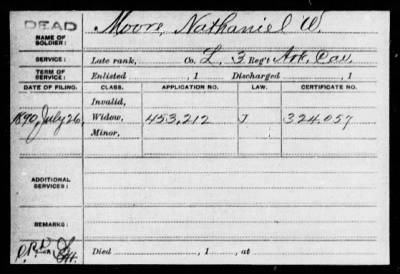 DEAD
NAME OF SOLDIER: Moore, Nathaniel W.
SERVICE: Late rank, Co. L, 3 Reg't Ark. Cav.
TERM OF SERVICE: Enlisted , 1 Discharged , 1
DATE OF FILING. CLASS. APPLICATION NO. LAW. CERTIFICATE NO.
Invalid,
1890, July 26 Widow, 453,212 J 324.057
Minor,
ADDITIONAL SERVICES:
REMARKS:
Died , 1 , at